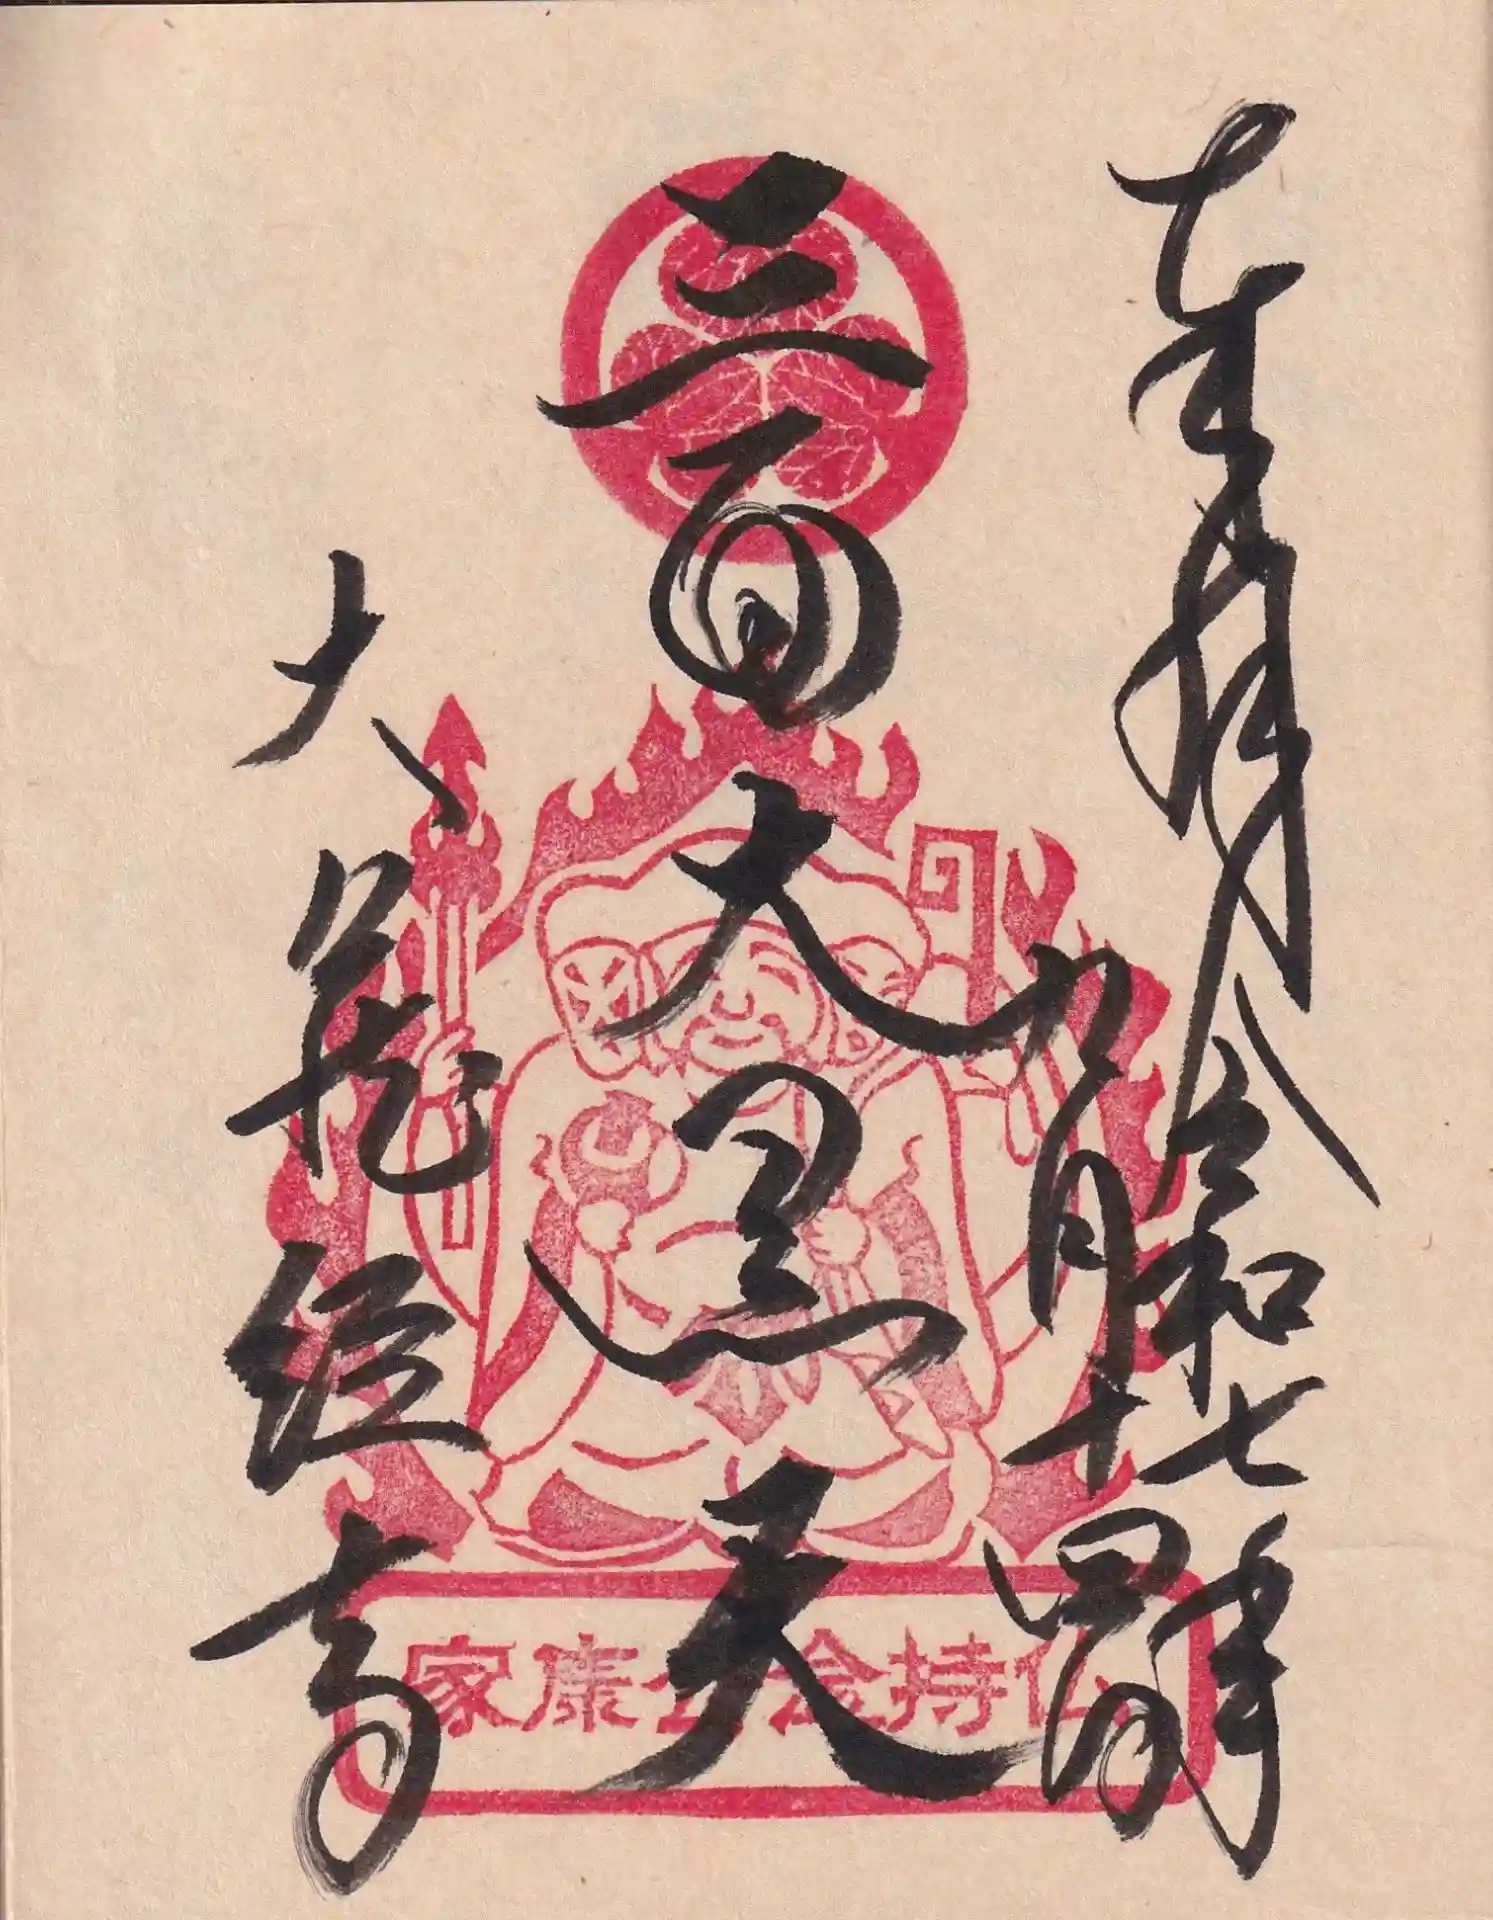 奉拝 令和七年
九月十四日
三面大黒天
大蔵経寺
家康公念持仏